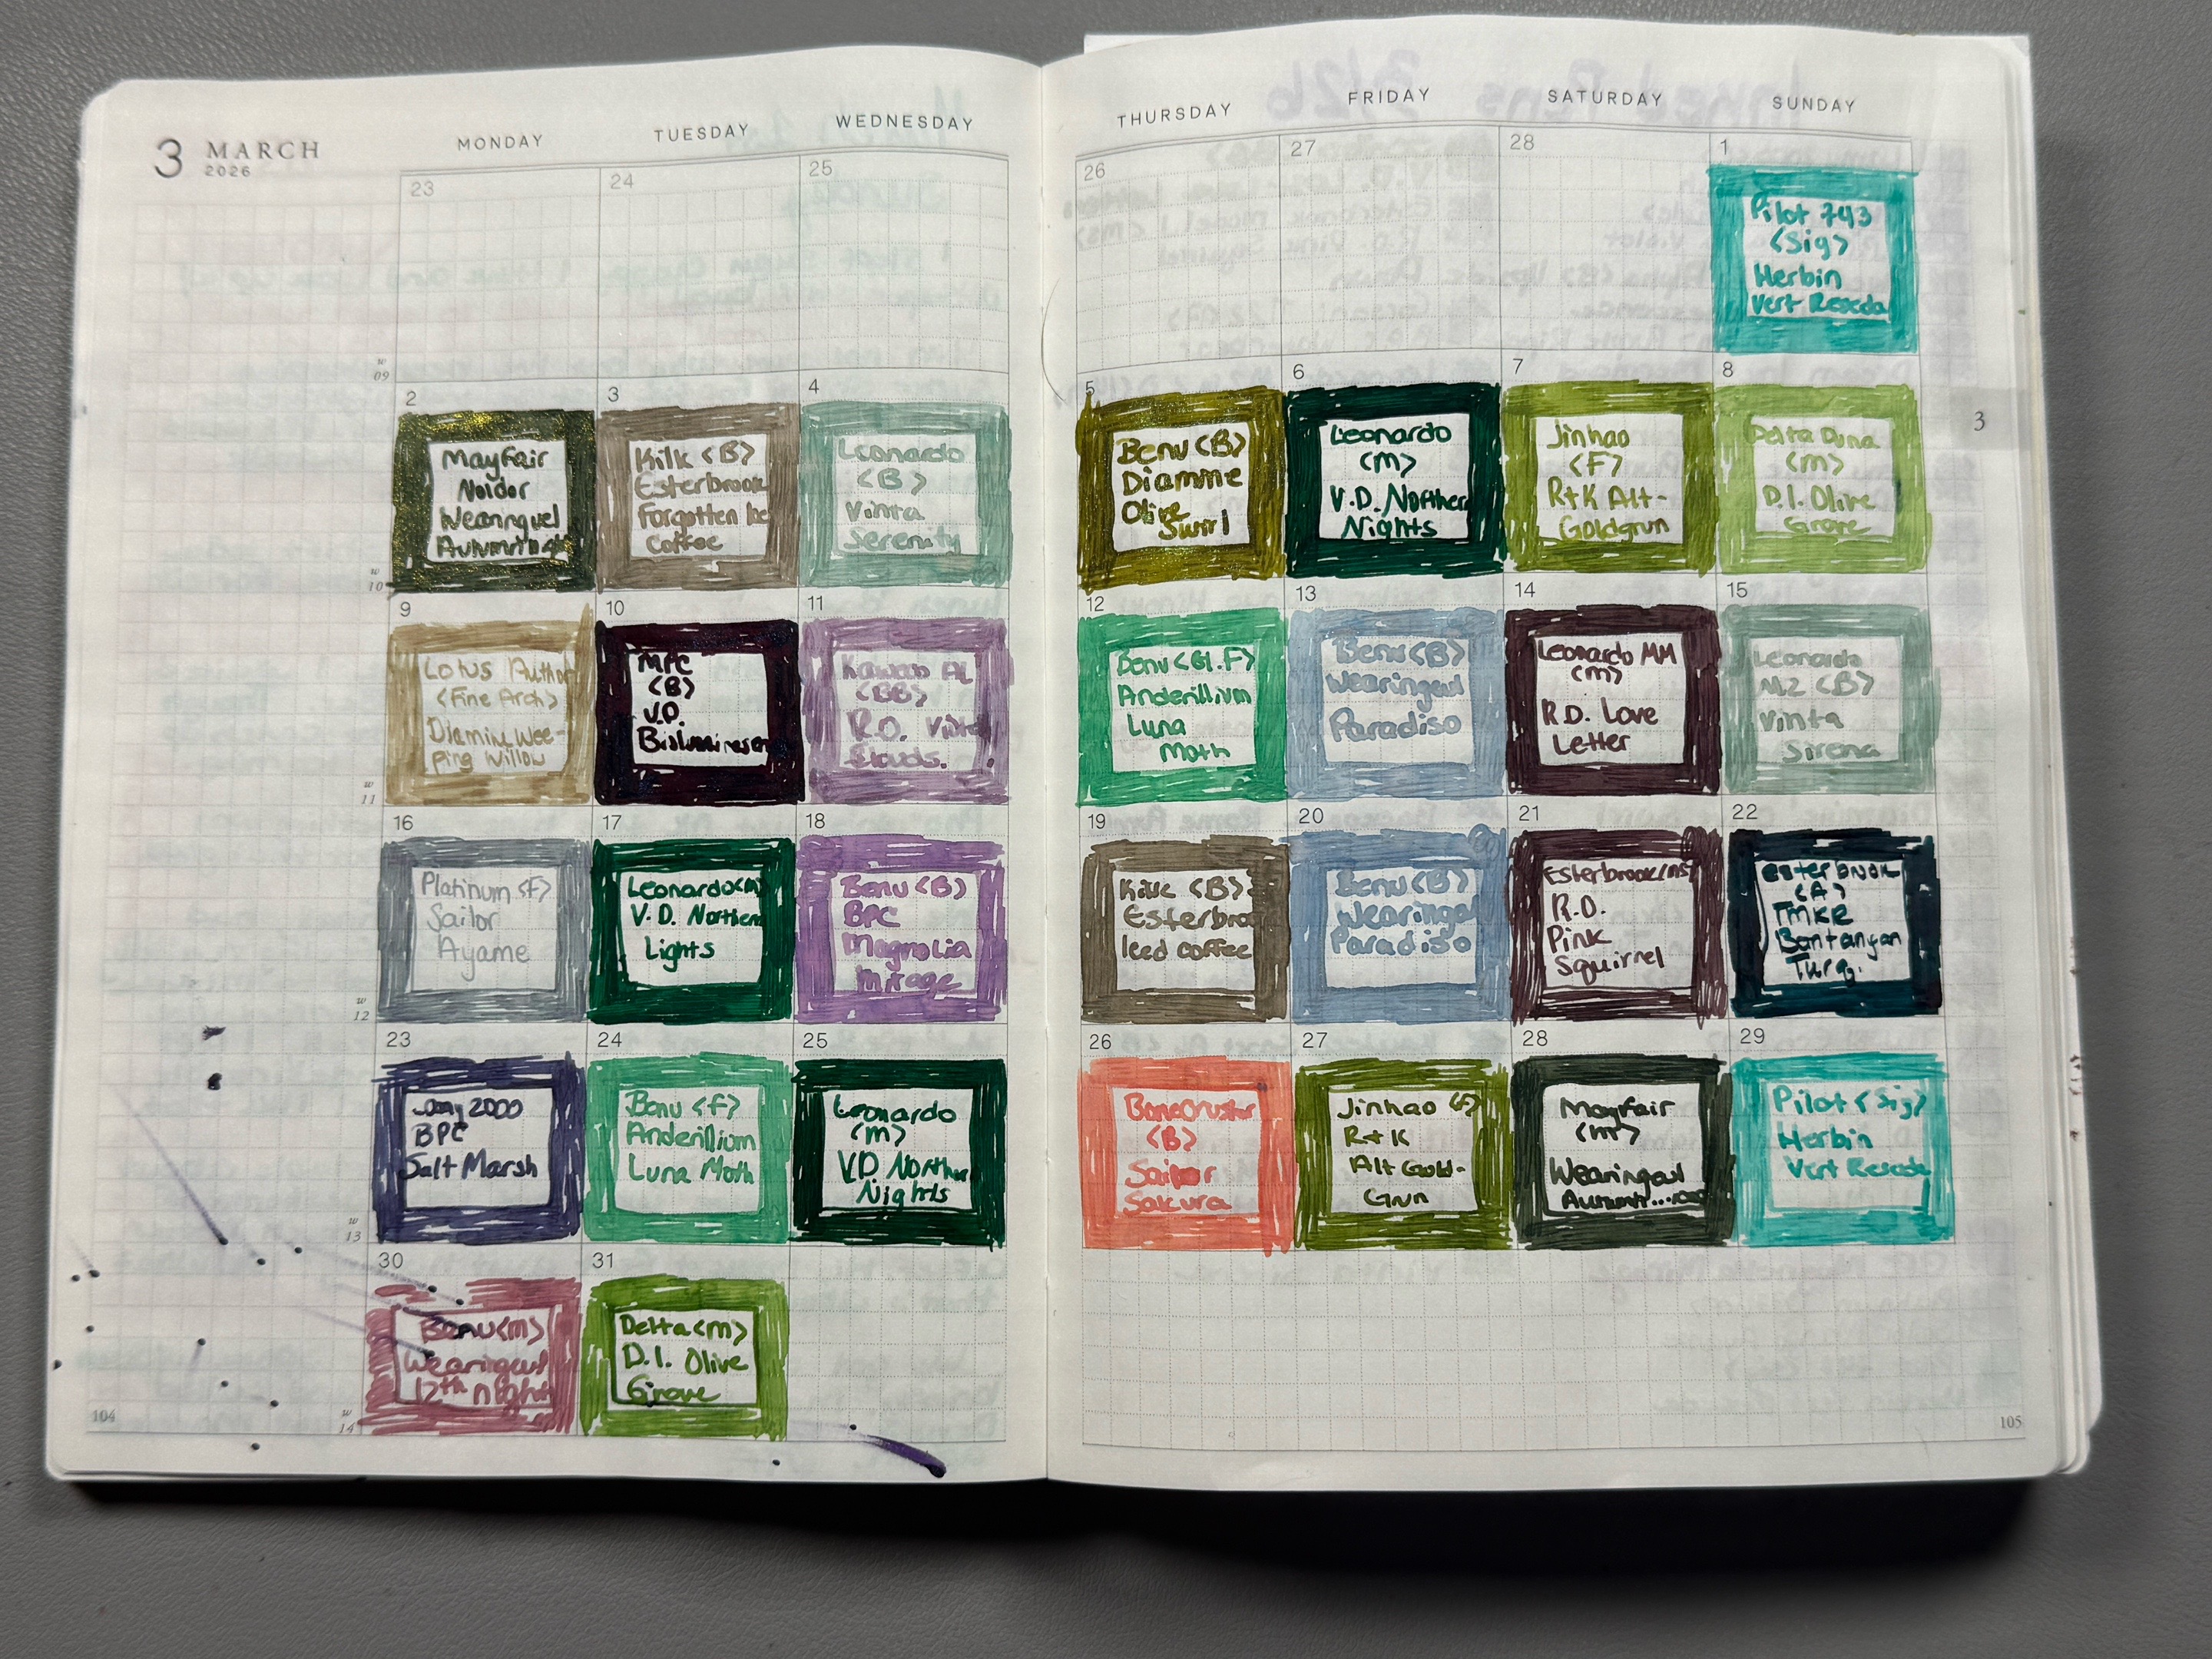 3 MARCH
2026
MONDAY
TUESDAY
WEDNESDAY
THURSDAY
FRIDAY
SATURDAY
SUNDAY
23
24
25
26
27
28
1
Pilot 743
<Sig>
Herbin
Vert Reseda
w
09
2
Mayfair
Noidor
Wearingeul
3
Kilk <B>
Esterbrook
Forgotten Ice
Coffee
4
Leonardo
<B>
Vinta
Serenity
5
Benu <B>
Diamine
Olive
Swirl
6
Leonardo
<M>
V.D. Northern
Nights
7
Jinhao
<F>
R+K Alt-
Goldgrun
8
Delta Duna
<m>
D.I. Olive
Grove
3
w
10
9
Lotus Author
<Fine Arch>
Diamine Wee-
ping Willow
10
MPC
<B>
V.D.
11
Kaweco AL
<BB>
R.D.
Clouds.
12
Benu <Gl.F>
Anderillium
Luna
Moth
13
Benu <B>
Wearingeul
Paradiso
14
Leonardo MM
<m>
R.D. Love
Letter
15
Leonardo
MZ <B>
Vinta
Sirena
w
11
16
Platinum <F>
Sailor
Ayame
17
Leonardo <M>
V.D. Northern
Lights
18
Benu <B>
BPC
Magnolia
Mirage
19
Kilk <B>
Esterbroo
Iced coffee
20
Benu <B>
Wearingeul
Paradiso
21
Esterbrook
R.D.
Pink
Squirrel
22
Esterbrook
<A>
Turq.
w
12
23
Lamy 2000
BPC
Salt Marsh
24
Benu <F>
Anderillium
Luna Moth
25
Leonardo
<m>
V.D. Northern
Nights
26
BoneCruster
<B>
Sailor
Sakura
27
Jinhao <F>
R+K
Alt Gold-
Grun
28
Mayfair
<m>
Wearingeul
29
Pilot <Sig>
Herbin
Vert Reseda
w
13
30
Benu <m>
Wearingeul
12th night
31
Delta <m>
D.I. Olive
Grove
w
14
104
105